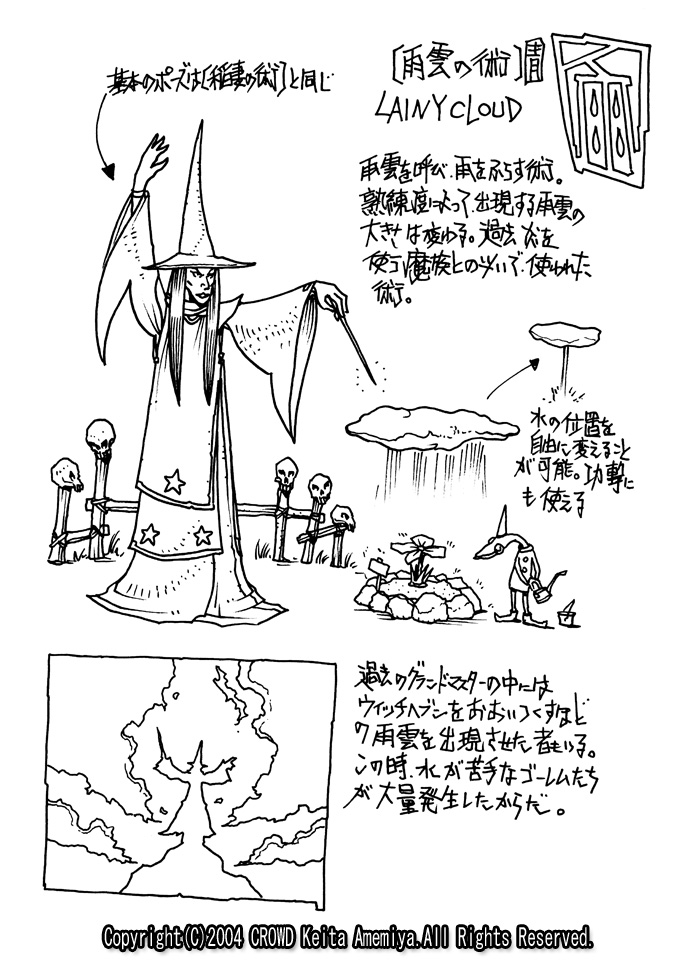 基本のポーズは〔稲妻の術〕と同じ
〔雨雲の術〕
LAINY CLOUD
雨雲を呼び、雨をふらす術。
熟練度によって、出現する雨雲の
大きさは変わる。過去、炎を
使う魔族とのツイで、使われた
術。
水の位置を
自由に変えること
が可能。功撃に
も使える
過去のグランドマスターの中には
ウィッチヘブンをおおいつくすほど
の雨雲を出現させた者もいる。
この時、水が苦手なゴーレムたち
が大量発生したからだ。
Copyright(C)2004 CROWD Keita Amemiya.All Rights Reserved.